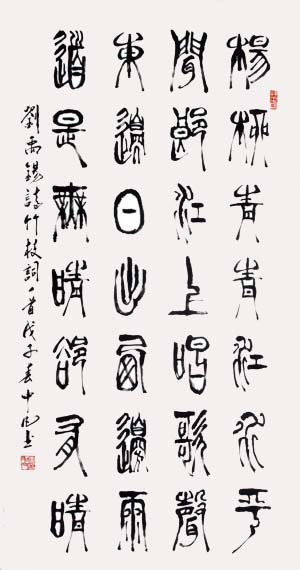 楊柳青青江水平
聞郎江上唱歌聲
東邊日出西邊雨
道是無晴卻有晴
劉禹錫詩竹枝詞一首戊子春中